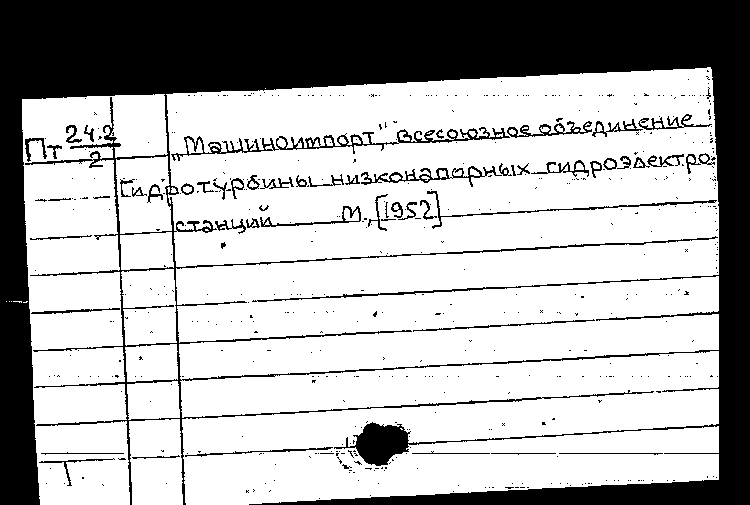 Пт 24.2/2 „Машиноимпорт", всесоюзное объединение
Гидротурбины низконапорных гидроэлектро-
станций М., [1952]